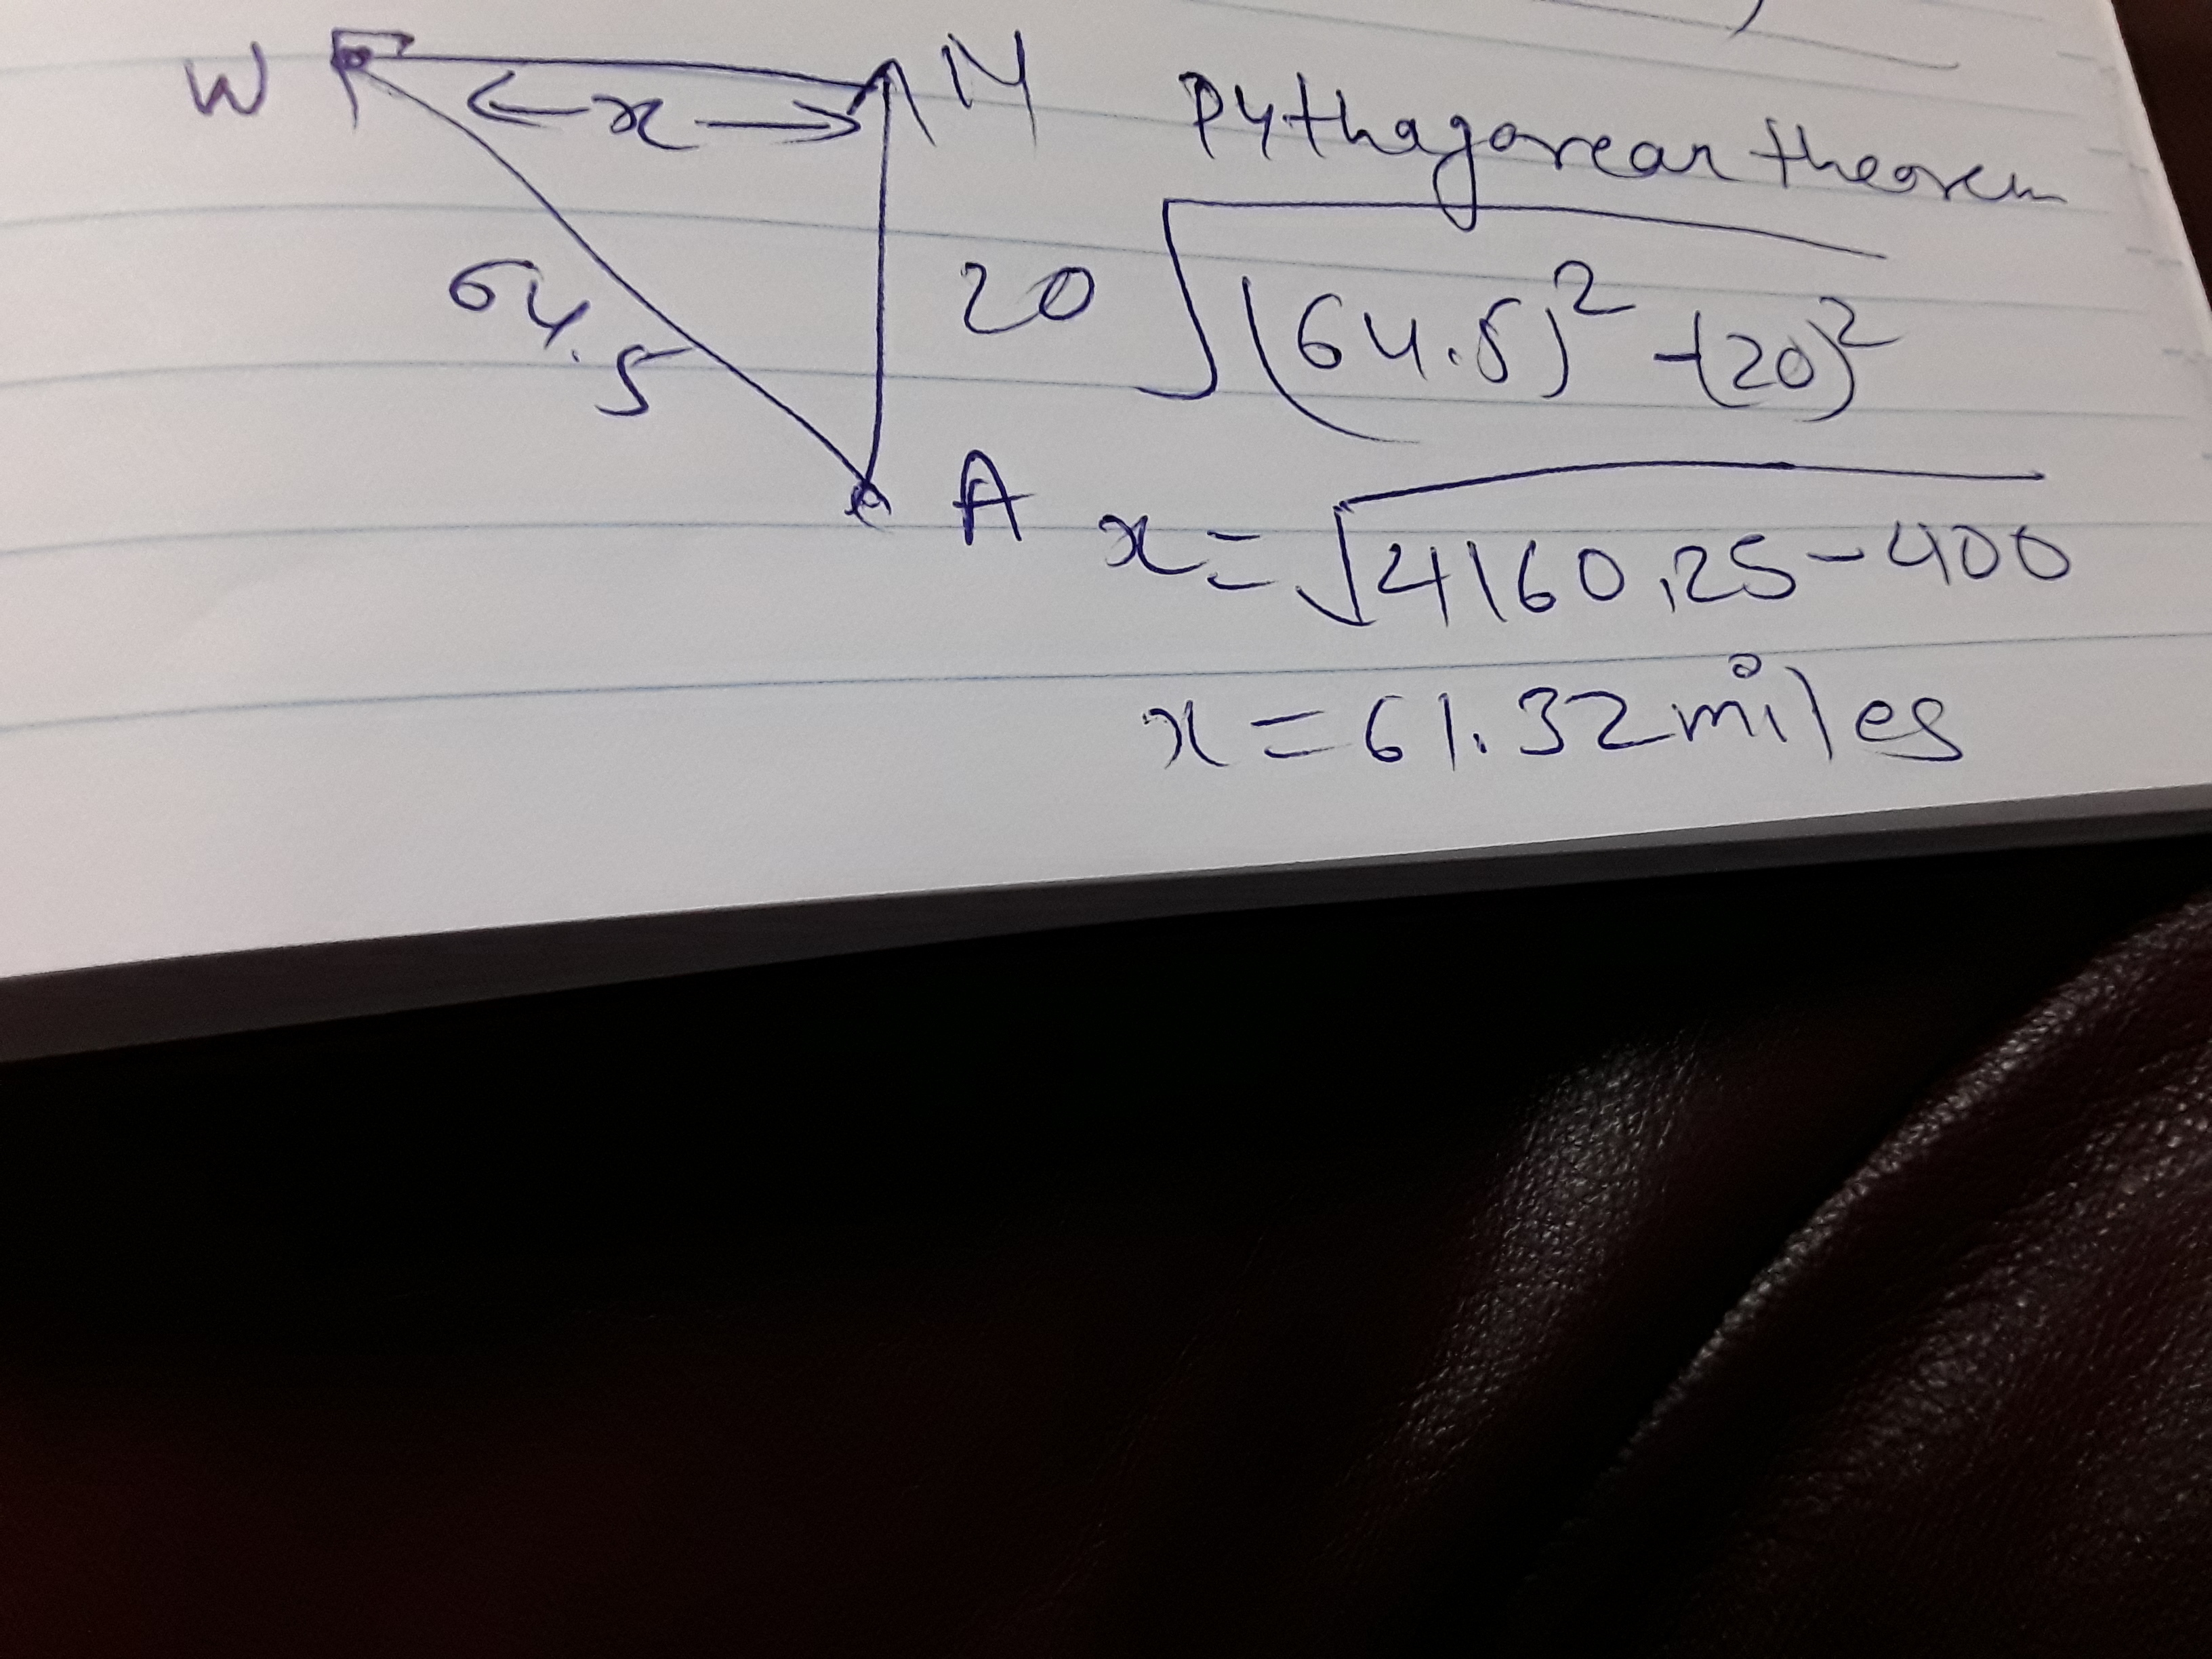 W
x
N
64.5
20
A
Pythagorean theorem
√(64.5)² -(20)²
x = √4160.25-400
x = 61.32 miles